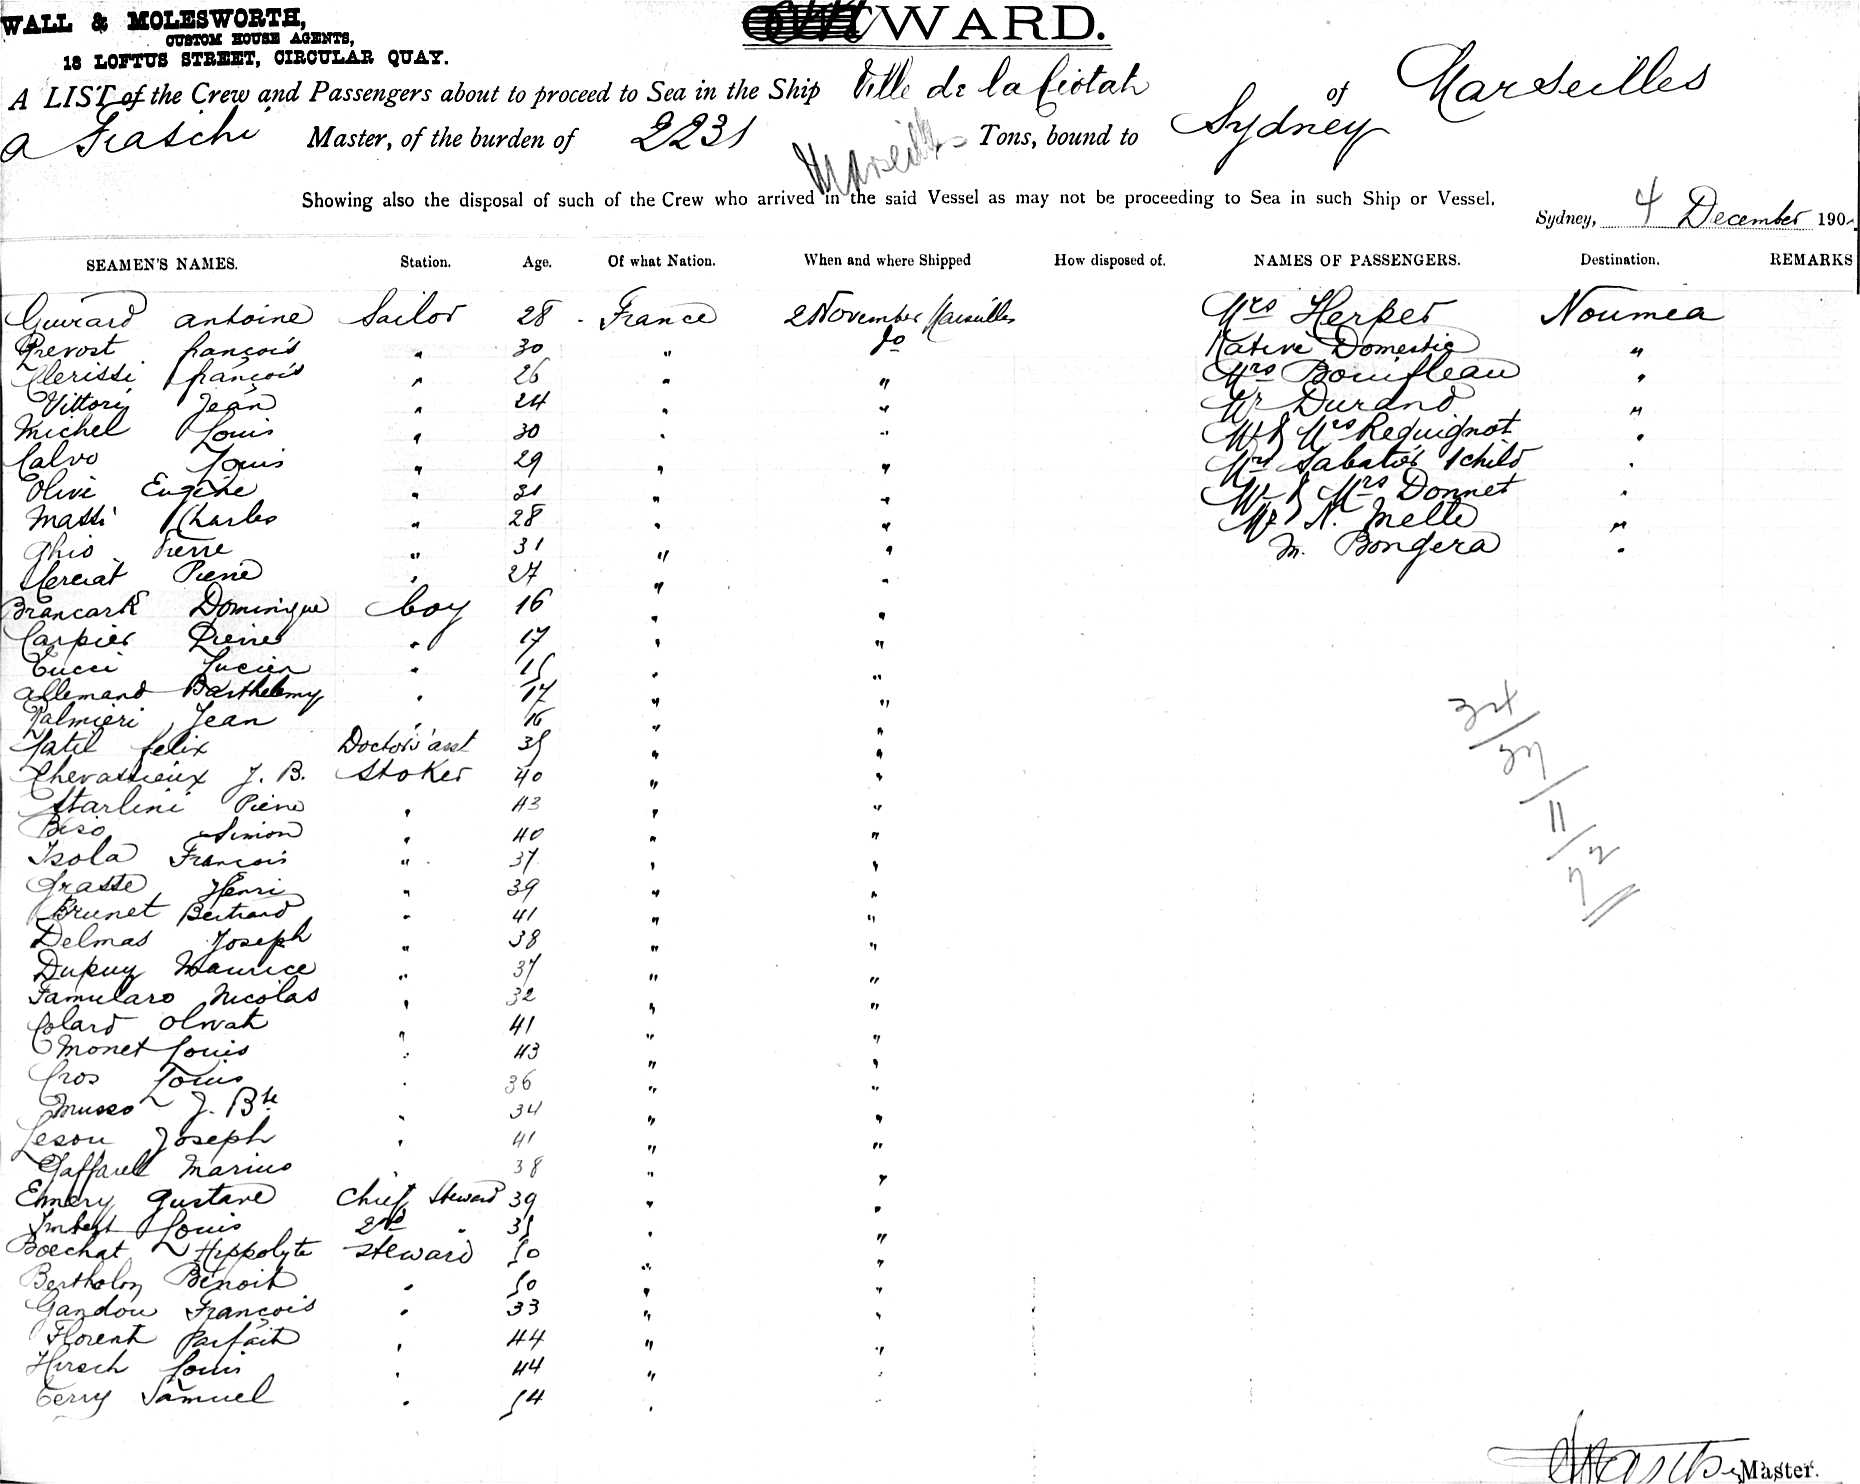 WALL & MOLESWORTH,
CUSTOM HOUSE AGENTS,
18 LOFTUS STREET, CIRCULAR QUAY.
WARD.
A LIST of the Crew and Passengers about to proceed to Sea in the Ship Ville de la Ciotat of Marseilles
a Fraschi Master, of the burden of 2231 Tons, bound to Sydney
Marseilles
Showing also the disposal of such of the Crew who arrived in the said Vessel as may not be proceeding to Sea in such Ship or Vessel.
Sydney, 4 December 190
SEAMEN'S NAMES. Station. Age. Of what Nation. When and where Shipped How disposed of. NAMES OF PASSENGERS. Destination. REMARKS
Guirard antoine Sailor 28 - France 2 November Marseilles Mrs Herper Noumea
Prevost françois " 30 " do Native Domestic "
Clerissi françois " 26 " " Mrs Bouifleau "
Vittori Jean " 24 " " Mr Durand "
Michel Louis " 30 " " Mr & Mrs Requignot "
Calvo Louis " 29 " " Mrs Sabatier 1 child "
Olivi Eugène " 31 " " Mr & Mrs Donnet "
Massi Charles " 28 " " Mr N. Melle "
Ghio Pierre " 31 " " M. Bongera "
Clerciat Pierre " 27 " "
Brancark Dominique boy 16 " "
Carpier Pierre " 17 " "
Tucci Lucien " 15 " "
Allemand Barthelemy " 17 " "
Palmieri Jean " 16 " "
Latil felix Doctors asst 35 " "
Chevassieux J. B. Stoker 40 " "
Starlini Pierre " 43 " "
Biso Simon " 40 " "
Isola François " 37 " "
Grasse Henri " 39 " "
Brunet Bertrand " 41 " "
Delmas Joseph " 38 " "
Dupuy Maurice " 37 " "
Famularo Nicolas " 32 " "
Colard " 41 " "
Monet Louis " 43 " "
Cros Louis " 36 " "
Musso J. Bte " 34 " "
Lesou Joseph " 41 " "
Gaffarel Marius " 38 " "
Emery Gustave Chief Steward 39 " "
Imbert Louis 2nd " 35 " "
Boechat Hippolyte Steward 50 " "
Bertholon Benoit " 50 " "
Gandou François " 33 " "
Florent Parfait " 44 " "
Hirsch Louis " 44 " "
Terry Samuel " 54 " "
34
27
11
72
Master.